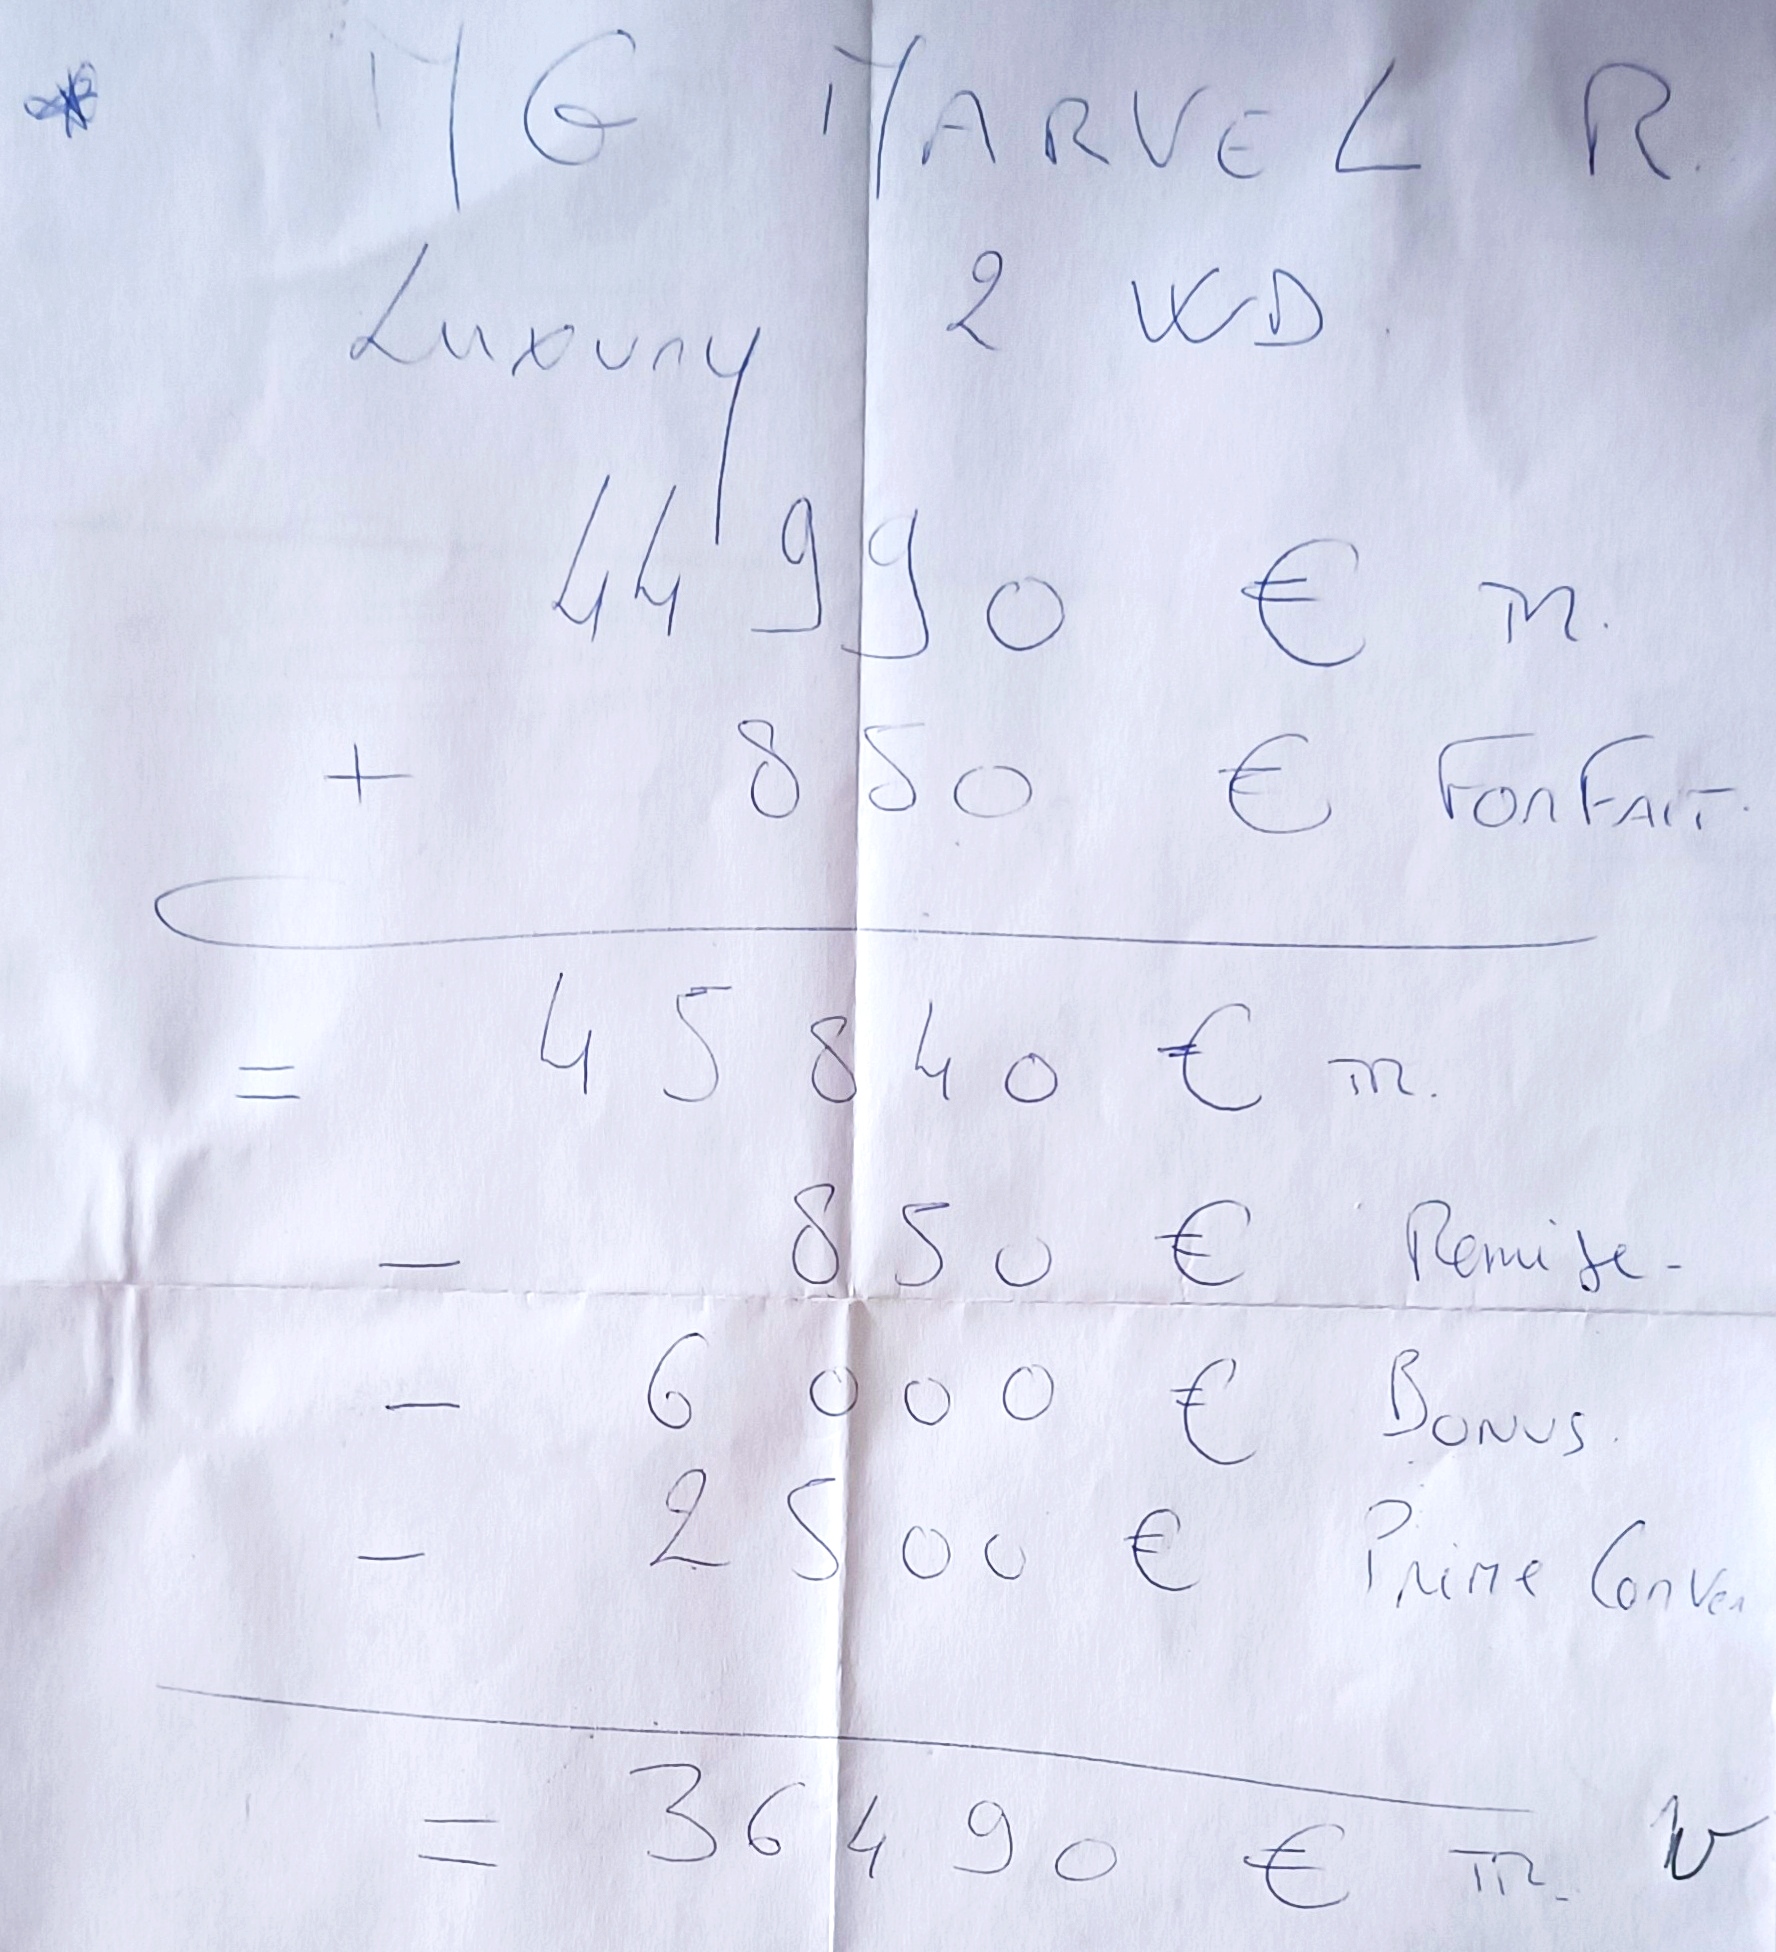 * MG MARVEL R.
Luxury 2 WD
44990 € TTC.
+ 850 € FORFAIT.
= 45840 € TTC.
- 850 € Remise-
- 6000 € BONUS.
- 2500 € Prime Conver
= 36490 € TTC.